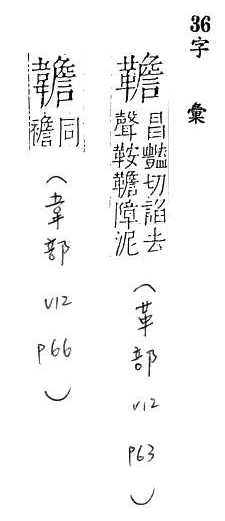 36字彙
韂
昌豔切諂去
聲鞍韂障泥
(革部 v12 p63)
䪜
同
襜
(韋部 v12 p66)